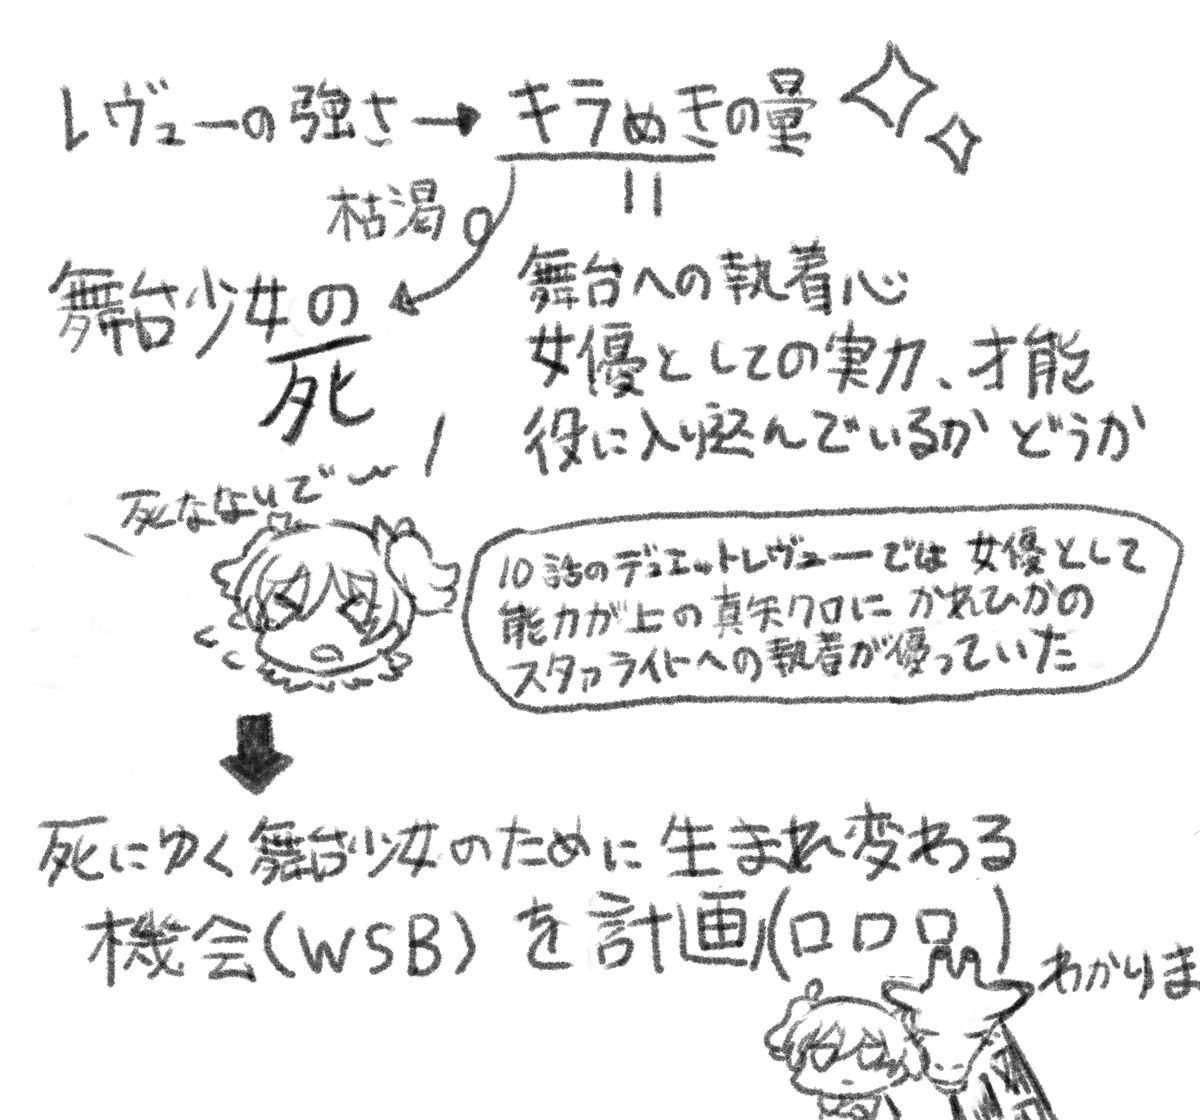 レヴューの強さ→キラめきの量
枯渇
舞台少女の
死
=
舞台への執着心
女優としての実力、才能
役に入り込んでいるかどうか
死なないで〜
10話のデュエットレヴューでは 女優として
能力が上の真矢クロに かれひかの
スタァライトへの執着が優っていた
死にゆく舞台少女のために 生まれ変わる
機会(WSB)を計画(ロロロ)
わかりま